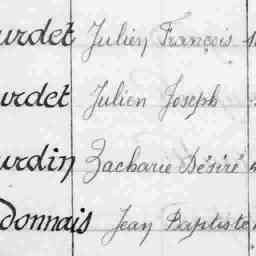 urdet Julien François
urdet Julien Joseph
urdin Zacharie Désiré
donnais Jean Baptiste